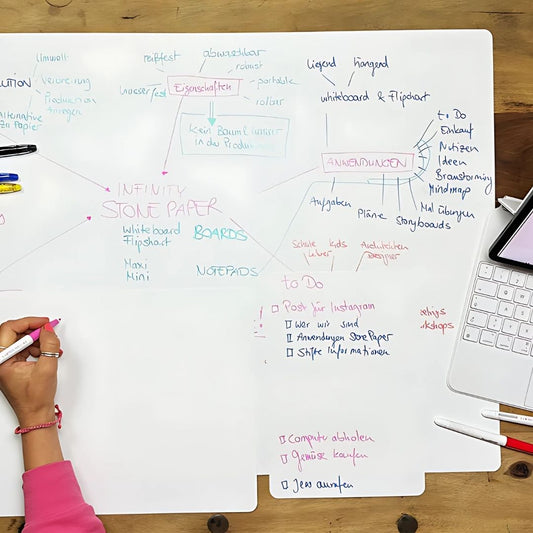 Umwelt
UTION
Alternative
zu Papier
reißfest
abwaschbar
robust
wasserfest
Eigenschaften
portable
rollbar
Kein Baum & Wasser
in der Produktion
liegend
hängend
whiteboard & Flipchart
ANWENDUNGEN
to Do
Einkauf
Notizen
Ideen
Brainstorming
Mindmap
Aufgaben
Pläne
Storyboards
Mal übungen
INFINITY
STONE PAPER
Whiteboard
Flipchart
BOARDS
Maxi
Mini
NOTEPADS
Schule
Lehrer
kids
Architekten
Designer
to Do
Post für Instagram
Wer wir sind
Anwendungen Stone Paper
Stifte Informationen
Computer abholen
Gemüse kaufen
Jess anrufen